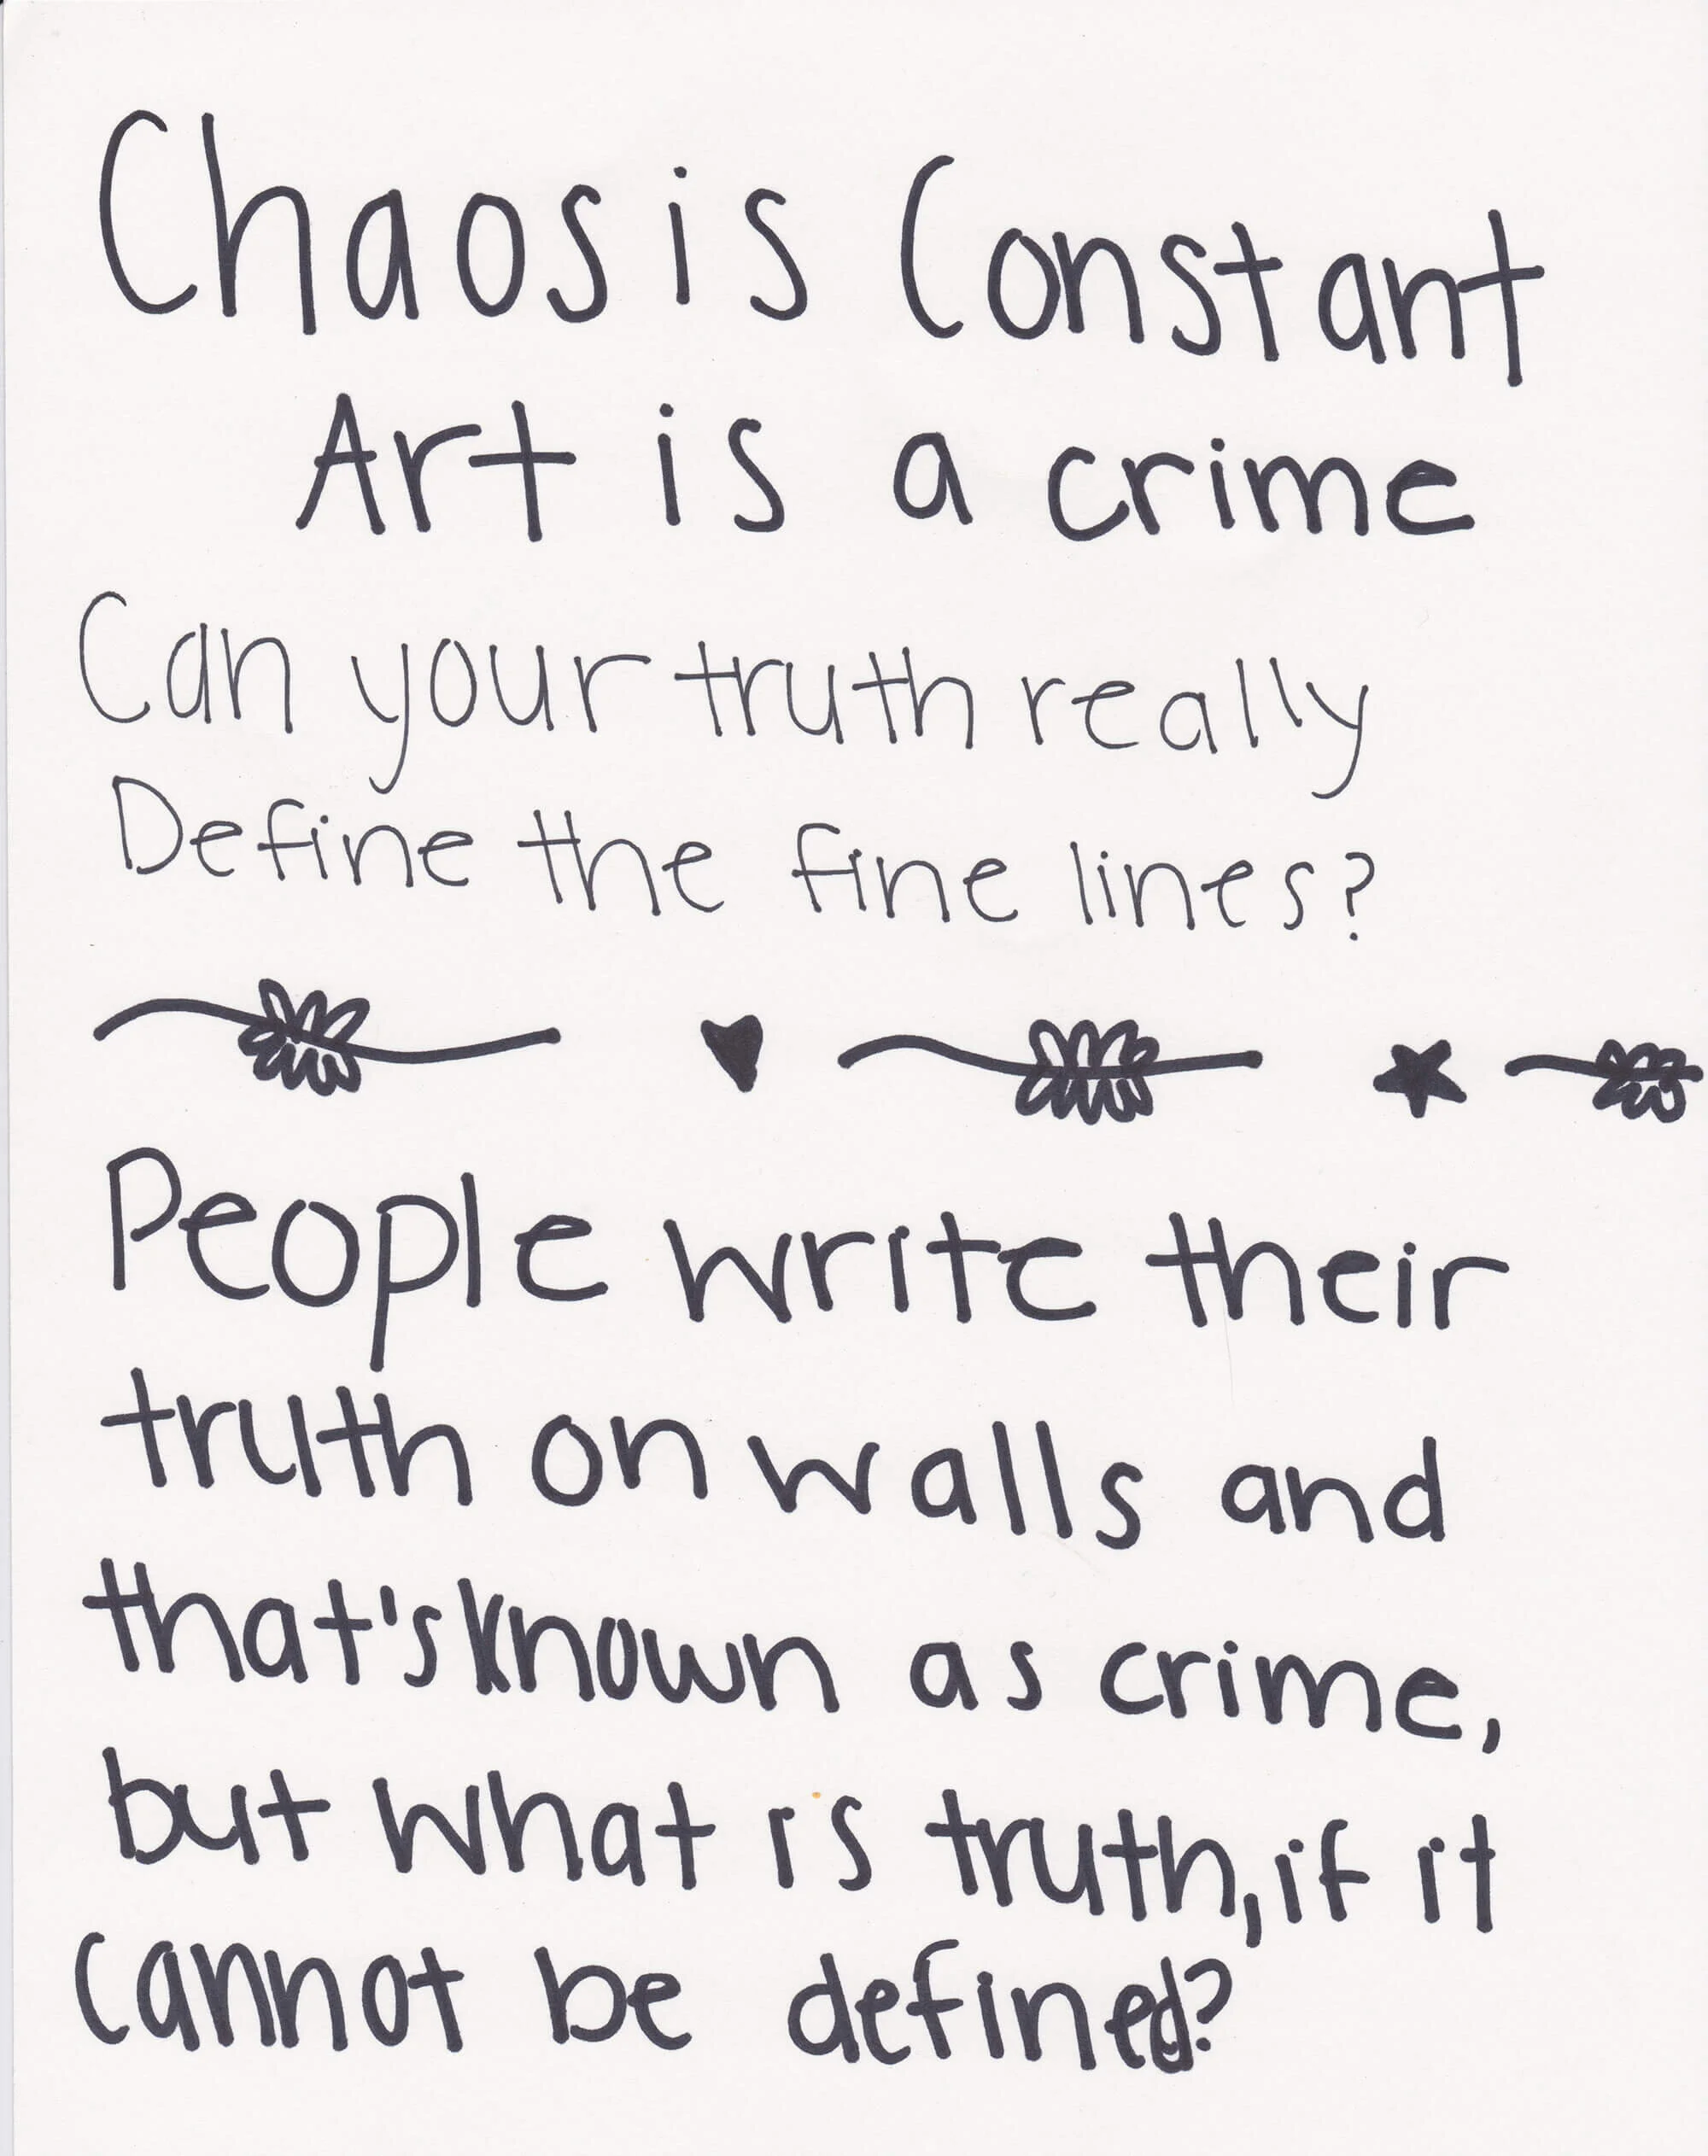 Chaos is Constant
Art is a crime
Can your truth really
Define the fine lines?
People write their
truth on walls and
that's known as crime,
but what is truth, if it
cannot be defined?